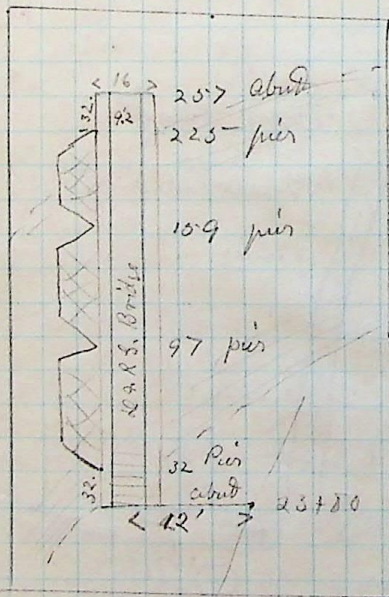 < 16 >
32.
92
257 abut
225 pier
159 pier
97 pier
D & R G. Bridge
32 Pier
abut
32.
< 12' >
23+80